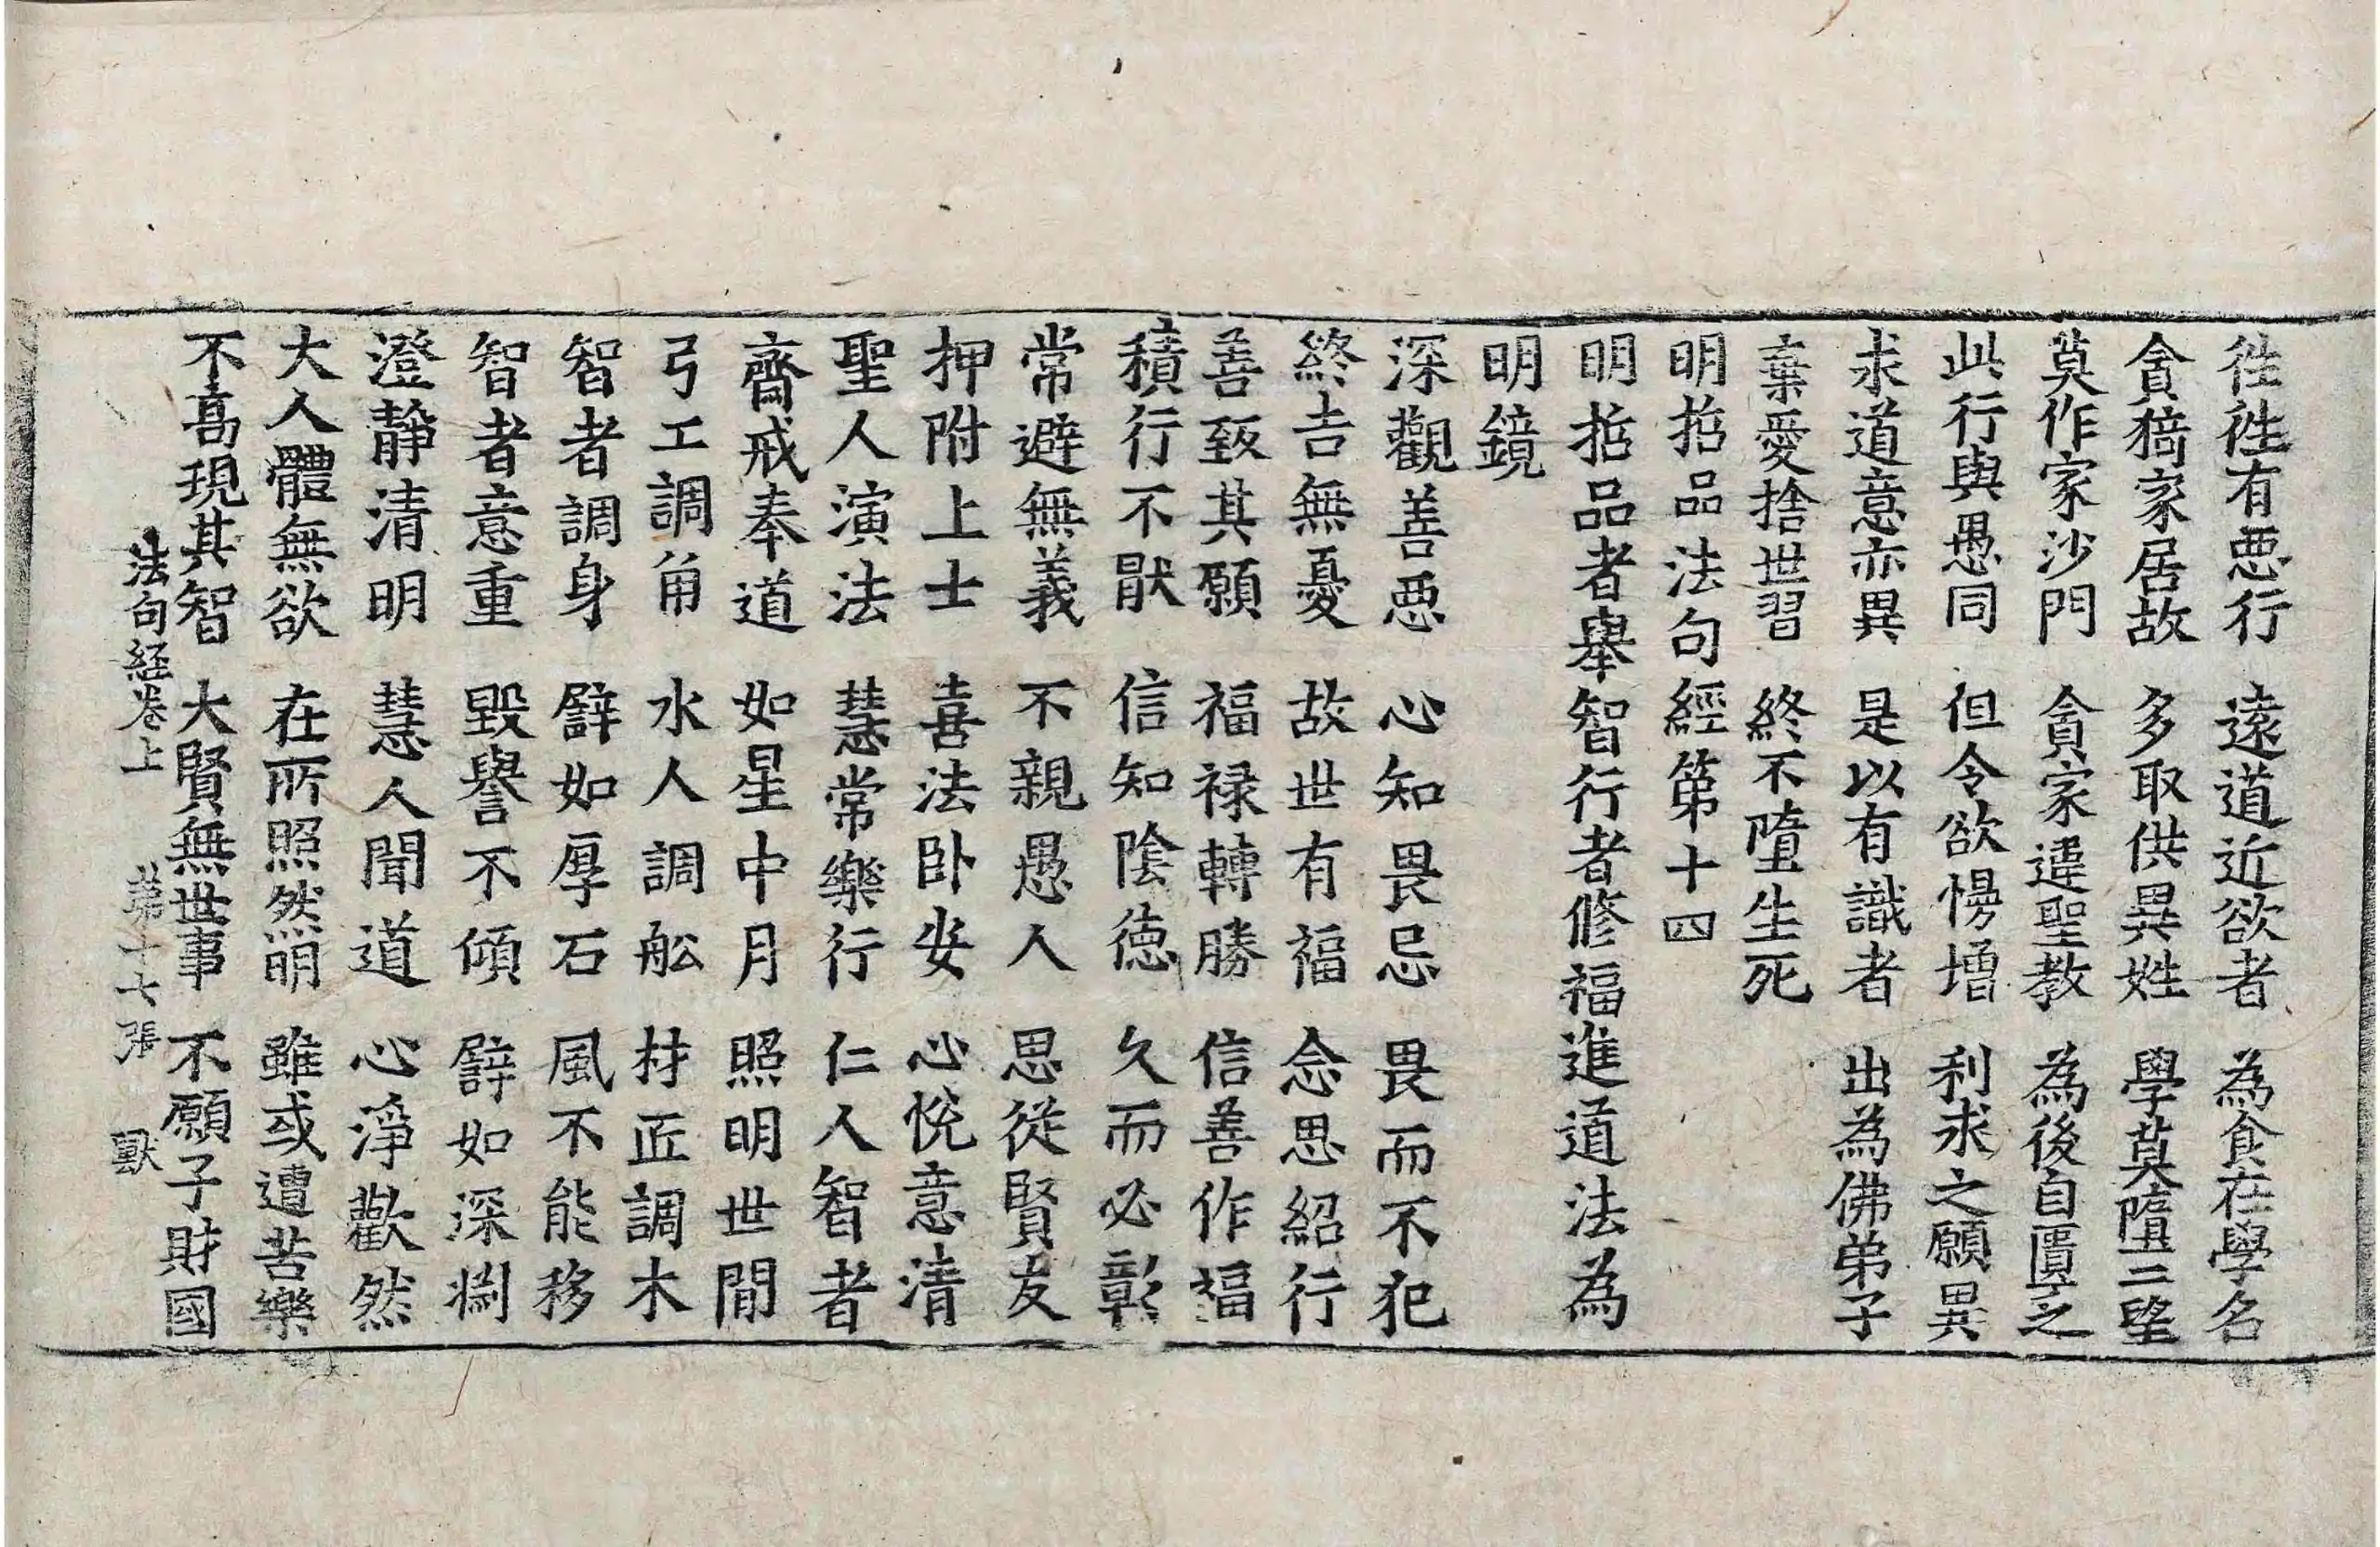 往往有惡行 遠道近欲者 為食在學名
貪猗家居故 多取供異姓 學莫墮二望
莫作家沙門 貪家違聖教 為後自匱乏
此行與愚同 但令欲慢增 利求之願異
求道意亦異 是以有識者 出為佛弟子
棄愛捨世習 終不墮生死
明哲品法句經第十四
明哲品者舉智行者修福進道法為
明鏡
深觀善惡 心知畏忌 畏而不犯
終吉無憂 故世有福 念思紹行
善致其願 福禄轉勝 信善作福
積行不猒 信知陰德 久而必彰
常避無義 不親愚人 思從賢友
押附上士 喜法卧安 心悅意清
聖人演法 慧常樂行 仁人智者
齋戒奉道 如星中月 照明世間
弓工調角 水人調舩 材匠調木
智者調身 譬如厚石 風不能移
智者意重 毀譽不傾 譬如深淵
澄靜清明 慧人聞道 心淨歡然
大人體無欲 在所照然明 雖或遭苦樂
不高現其智 大賢無世事 不願子財國
法句経卷上 第十七張 獸